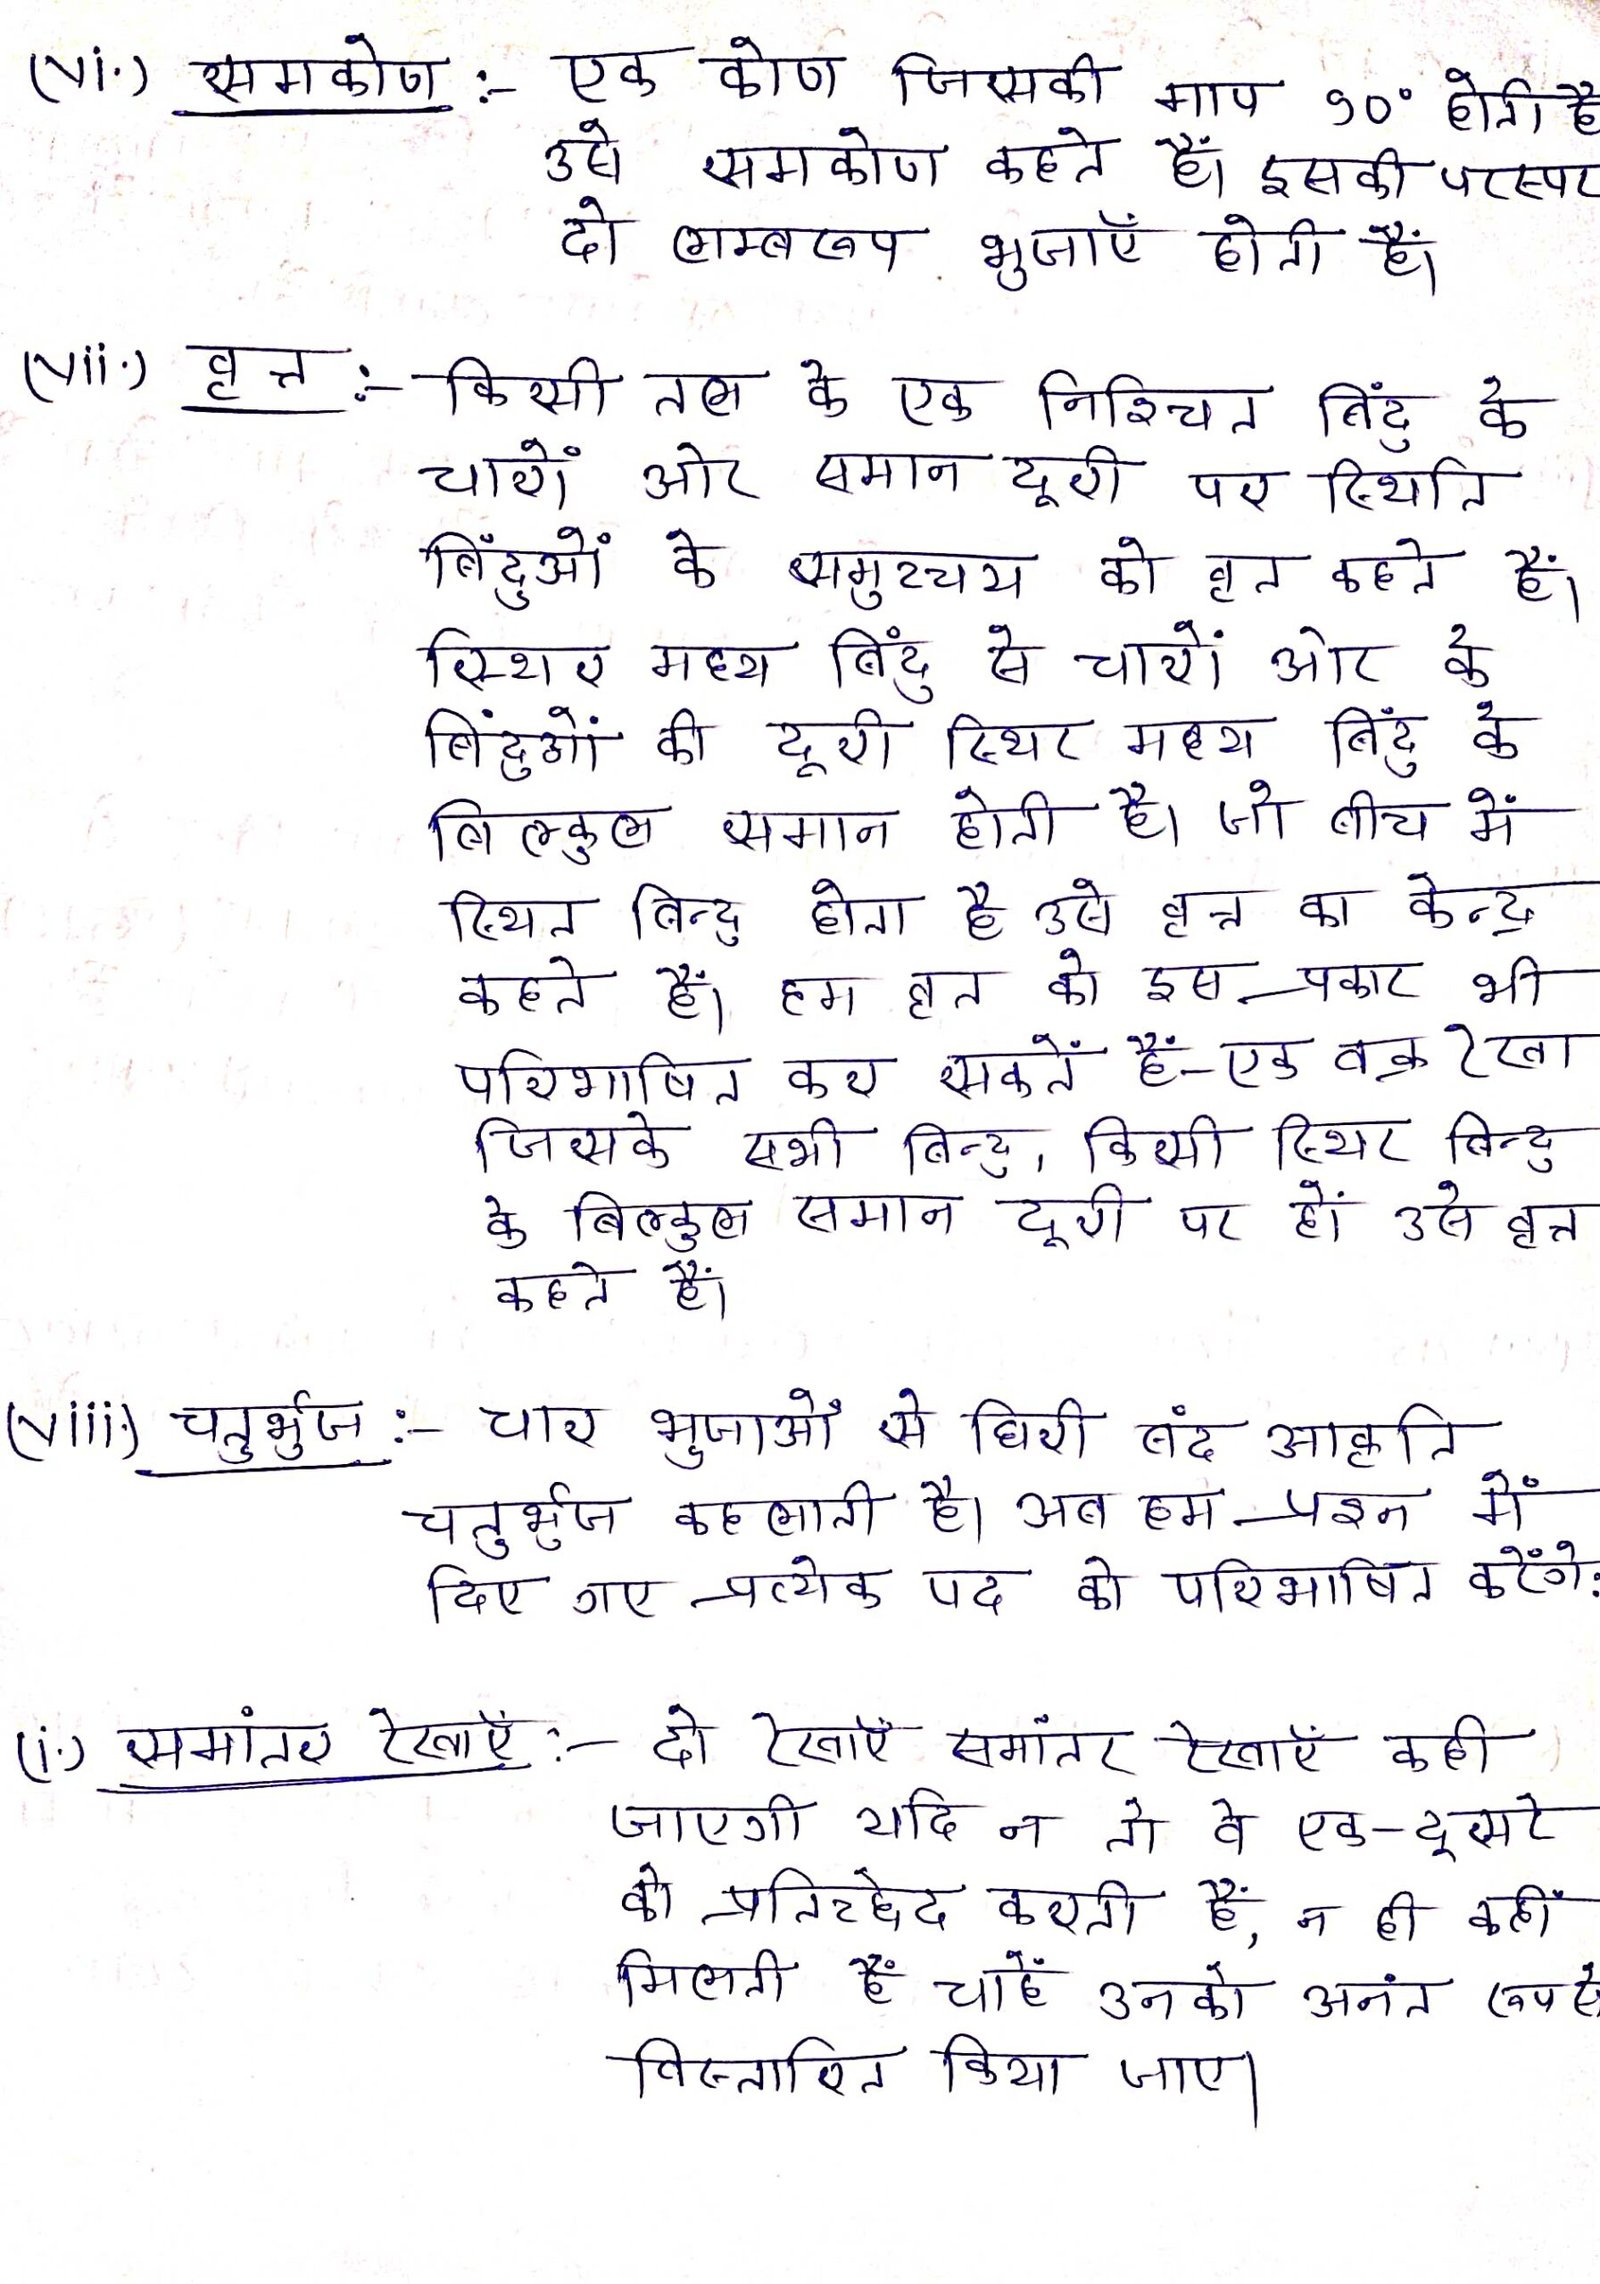 (vi.) समकोण :- एक कोण जिसकी माप 90° होती है
उसे समकोण कहते हैं। इसकी परस्पर
दो लम्बरूप भुजाएँ होती हैं।
(vii.) वृत्त :- किसी तल के एक निश्चित बिंदु के
चारों ओर समान दूरी पर स्थिति
बिंदुओं के समुच्चय को वृत कहते हैं।
स्थिर मध्य बिंदु से चारों ओर के
बिंदुओं की दूरी स्थिर मध्य बिंदु के
बिल्कुल समान होती है। जो बीच में
स्थित बिन्दु होता है उसे वृत्त का केन्द्र
कहते हैं। हम वृत को इस प्रकार भी
परिभाषित कर सकतें हैं- एक वक्र रेखा
जिसके सभी बिन्दु, किसी स्थिर बिन्दु
के बिल्कुल समान दूरी पर हों उसे वृत्त
कहते हैं।
(viii.) चतुर्भुज :- चार भुजाओं से घिरी बंद आकृति
चतुर्भुज कहलाती है। अब हम प्रश्न में
दिए गए प्रत्येक पद को परिभाषित करेंगे:
(i.) समांतर रेखाएँ :- दो रेखाएँ समांतर रेखाएँ कही
जाएगी यदि न तो वे एक-दूसरे
को प्रतिच्छेद करती हैं, न ही कहीं
मिलती हैं चाहें उनको अनंत रूप से
विस्तारित किया जाए।